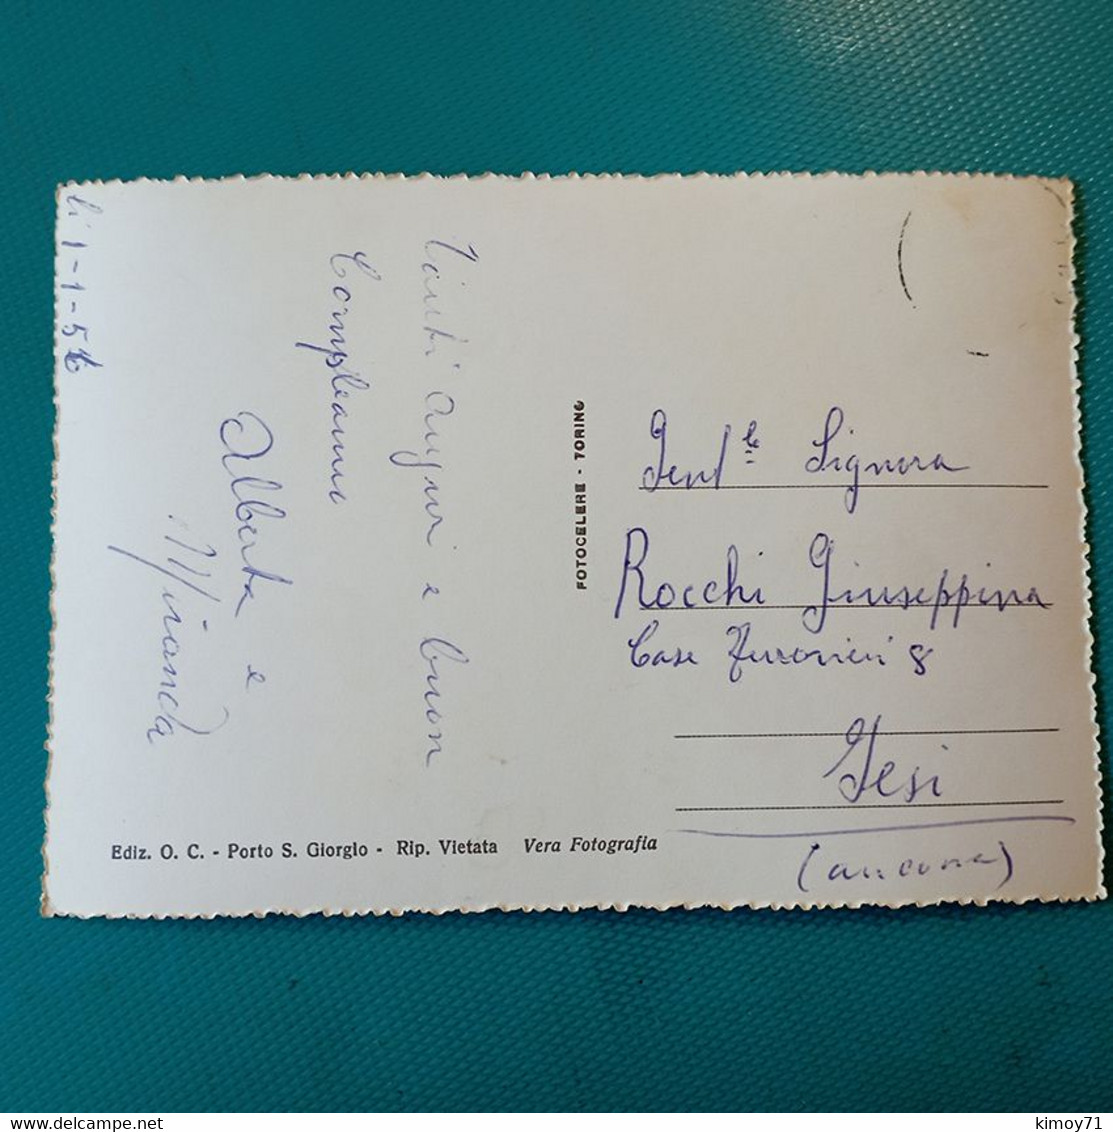 li 1-1-56
Tanti Auguri e buon
Compleanno
Alberta e
Miranda
FOTOCELERE - TORINO
Gent le Signora
ROCCHI Giuseppina
Case 8
Jesi
(ancona)
Ediz. O. C. - Porto S. Giorgio - Rip. Vietata Vera Fotografia
kimoy71